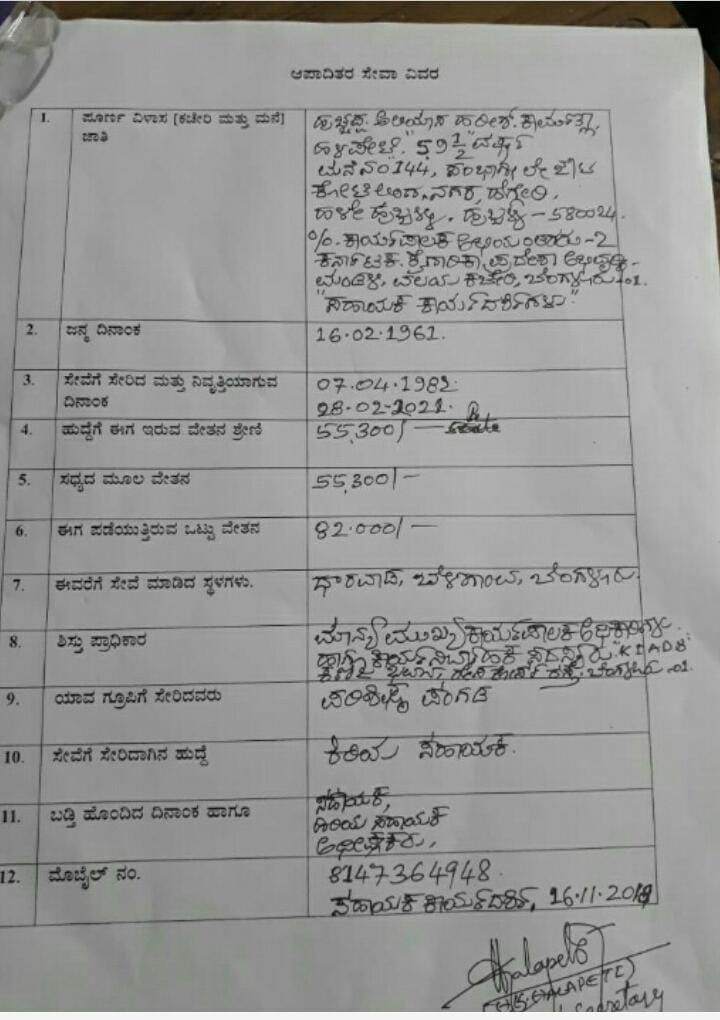 ಆಪಾದಿತರ ಸೇವಾ ವಿವರ
1. ಪೂರ್ಣ ವಿಳಾಸ [ಕಚೇರಿ ಮತ್ತು ಮನೆ]
ಜಾತಿ
59 1/2 ವರ್ಷ
ಮನೆ ನಂ 144,
ನಗರ, ಹೆಗ್ಗೇರಿ,
ಹಳೇ ಹುಬ್ಬಳ್ಳಿ, ಹುಬ್ಬಳ್ಳಿ - 580024.
%. ಕಾರ್ಯಪಾಲಕ ಅಭಿಯಂತರರು - 2
ಕರ್ನಾಟಕ ಕೈಗಾರಿಕಾ ಪ್ರದೇಶಾ ಅಭಿವೃದ್ಧಿ
ಮಂಡಳಿ, ವಲಯ ಕಚೇರಿ, ಬೆಂಗಳೂರು-01.
"ಸಹಾಯಕ ಕಾರ್ಯದರ್ಶಿಗಳು"
2. ಜನ್ಮ ದಿನಾಂಕ
16.02.1961.
3. ಸೇವೆಗೆ ಸೇರಿದ ಮತ್ತು ನಿವೃತ್ತಿಯಾಗುವ
ದಿನಾಂಕ
07.04.1982.
28-02-2021.
4. ಹುದ್ದೆಗೆ ಈಗ ಇರುವ ವೇತನ ಶ್ರೇಣಿ
55,300/-
5. ಸಧ್ಯದ ಮೂಲ ವೇತನ
55,300/-
6. ಈಗ ಪಡೆಯುತ್ತಿರುವ ಒಟ್ಟು ವೇತನ
82.000/-
7. ಈವರೆಗೆ ಸೇವೆ ಮಾಡಿದ ಸ್ಥಳಗಳು.
ಧಾರವಾಡ, ಬೆಳಗಾಂವ, ಬೆಂಗಳೂರು.
8. ಶಿಸ್ತು ಪ್ರಾಧಿಕಾರ
ಮಾನ್ಯ ಮುಖ್ಯ ಕಾರ್ಯಪಾಲಕ ಅಧಿಕಾರಿಗಳು
ಹಾಗೂ ಕಾರ್ಯನಿರ್ವಾಹಕ ಸದಸ್ಯರು "KIADB"
ರಸ್ತೆ, ಬೆಂಗಳೂರು-01.
9. ಯಾವ ಗ್ರೂಪಿಗೆ ಸೇರಿದವರು
ಪರಿಶಿಷ್ಟ ಪಂಗಡ
10. ಸೇವೆಗೆ ಸೇರಿದಾಗಿನ ಹುದ್ದೆ
ಕಿರಿಯ ಸಹಾಯಕ.
11. ಬಡ್ತಿ ಹೊಂದಿದ ದಿನಾಂಕ ಹಾಗೂ
ಸಹಾಯಕ,
ಹಿರಿಯ ಸಹಾಯಕ
ಅಧೀಕ್ಷಕರು,
12. ಮೊಬೈಲ್ ನಂ.
8147364948.
ಸಹಾಯಕ ಕಾರ್ಯದರ್ಶಿ, 16.11.2019
Halapeti
HALAPETI)
Secretary